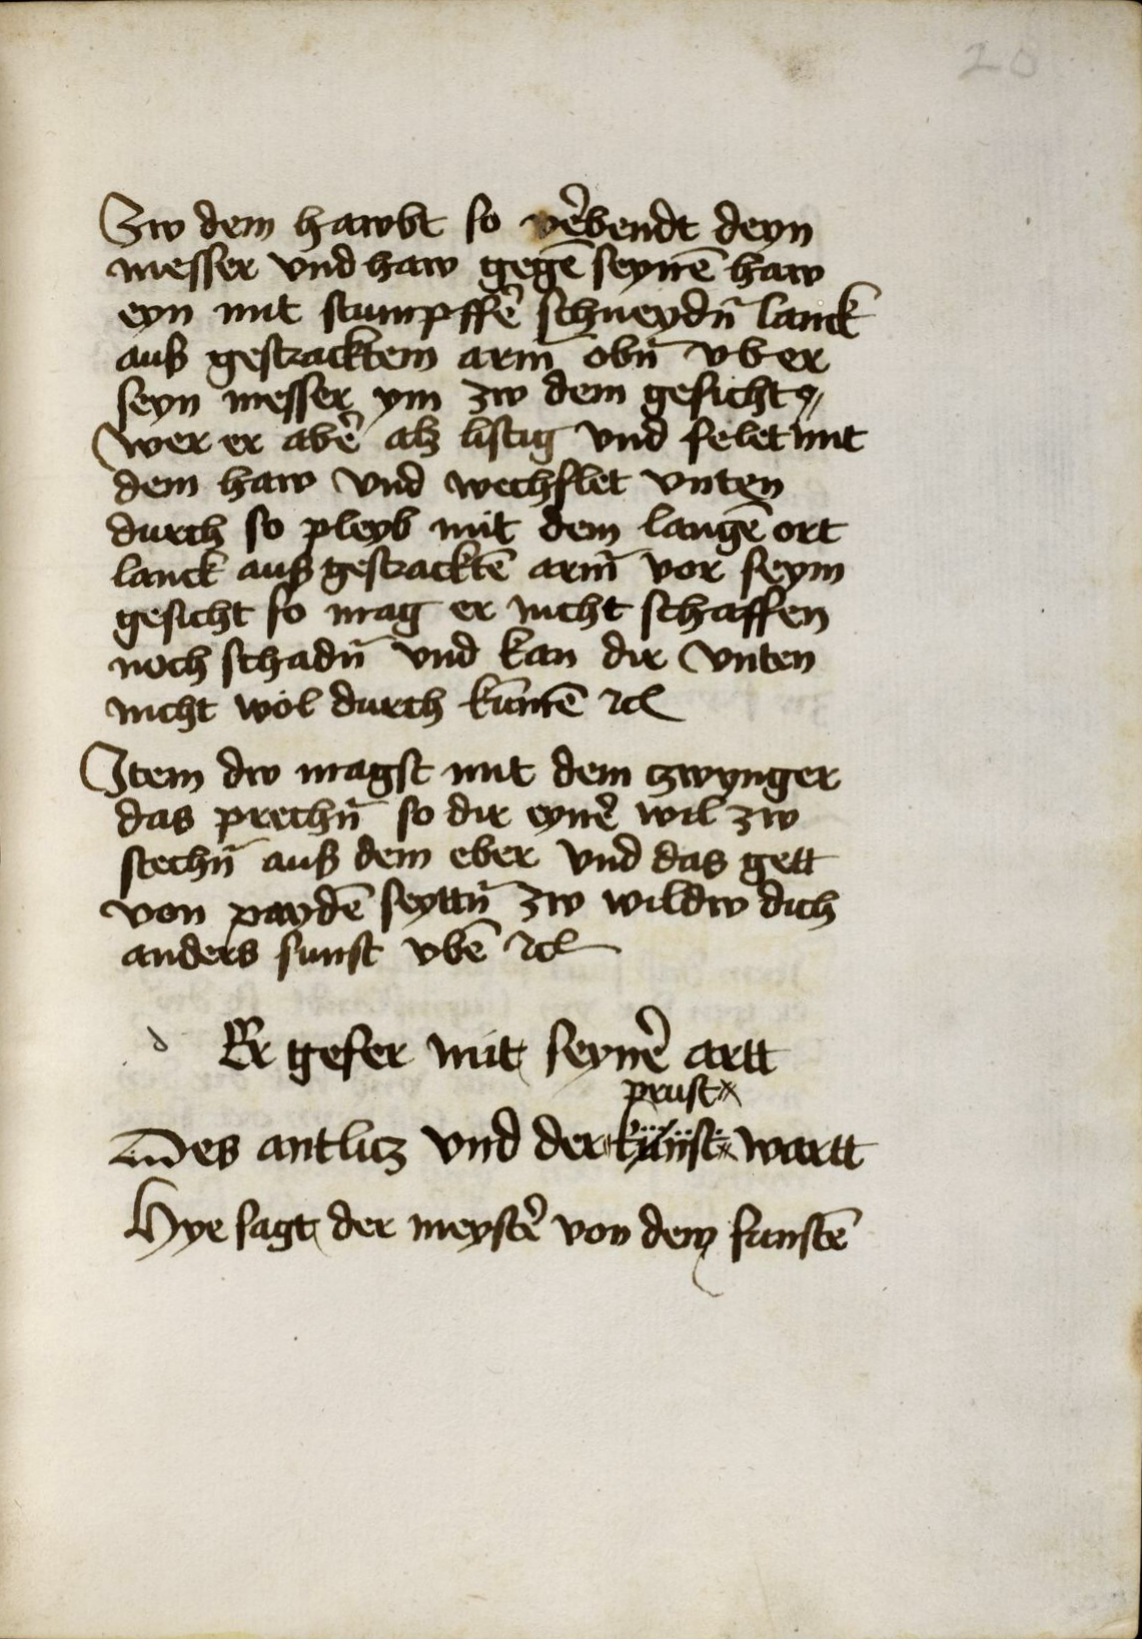 20
Zw dem hawbt so v̉ebendt deyn
messer vnd haw gegē seynē haw
eyn mit stumpffẽ schneydn̄ lanck
auß gestracktem arm̄ obn̄ vber
seyn messer ym zw dem gesicht
wer er abẽ alz listig vnd felet mit
dem haw vnd wechslet vnten
durch so pleyb mit dem langē ort
lanck auß gestracktē arm̄ vor seym
gesicht so mag er nicht schaffen
noch schadn̄ vnd kan dir vnten
nicht wol durch kūmē ꝛc
Item dw magst mit dem zwynger
das prechn̄ so dir eynẽ wil zw
stechn̄ auß dem eber vnd das gett
von paydē seyttn̄ zw wildw dich
anders sunst vbē ꝛc
d Er gefer mit seynẽ artt
prust
Des antlicz vnd der kunst wartt
Hye sagt der meystẽ von dem funftē